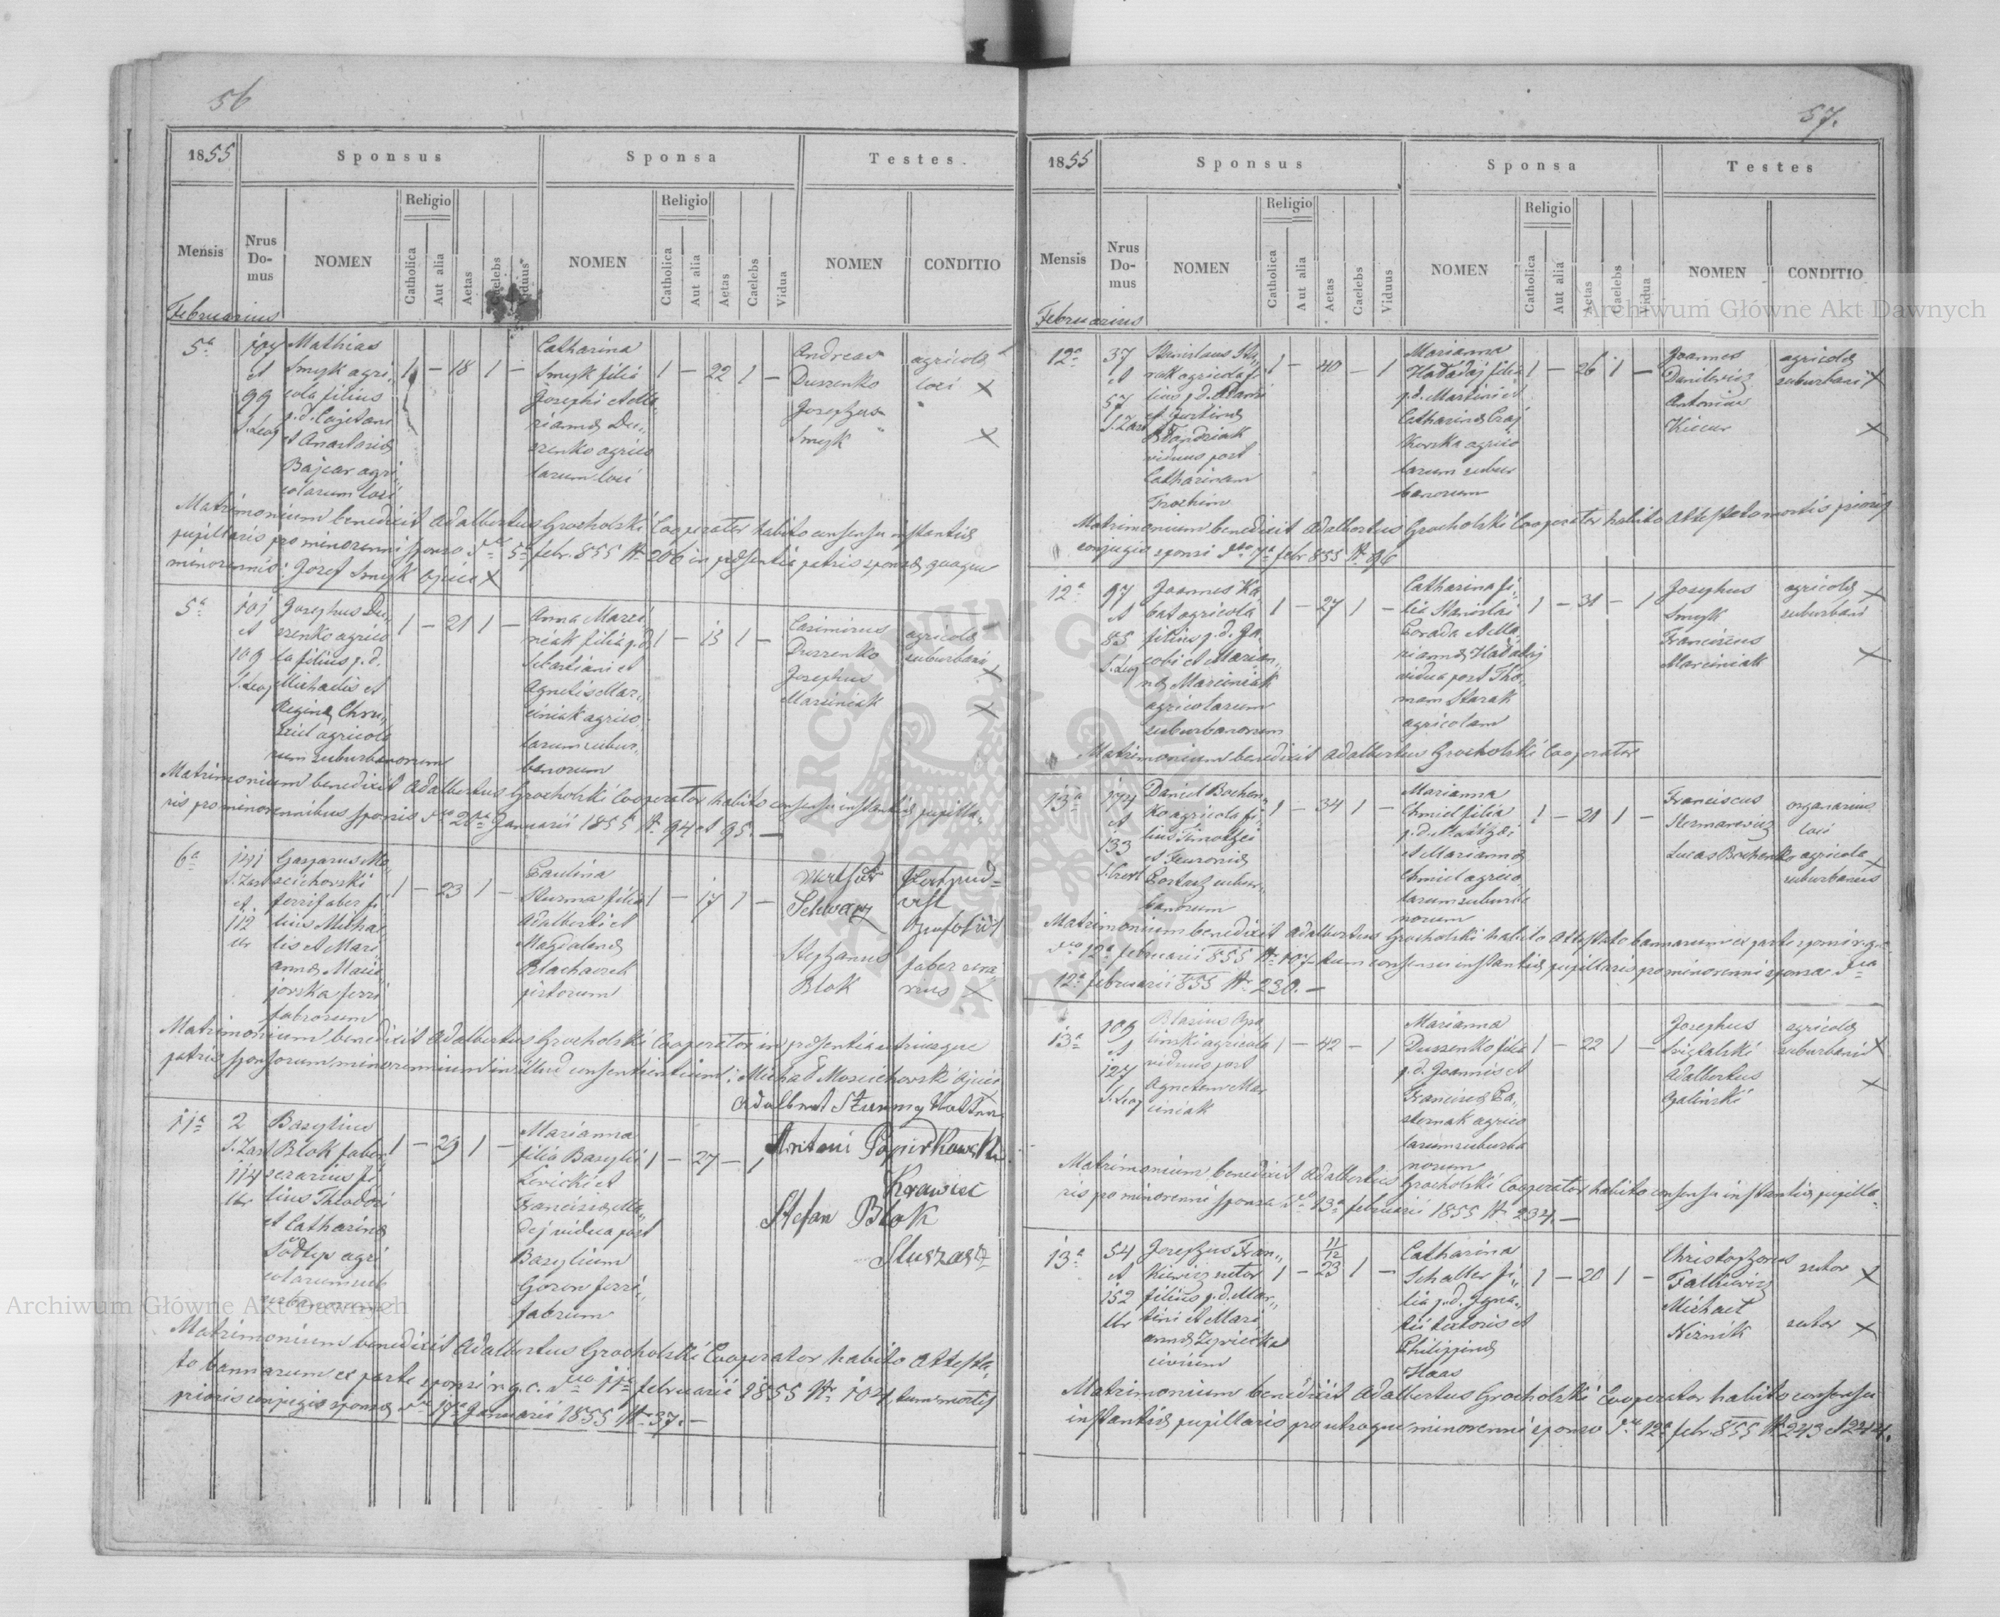 56
1855
Sponsus
Sponsa
Testes.
Mensis
Nrus
Do-
mus
NOMEN
Religio
Catholica
Aut alia
Aetas
Caelebs
Viduus
NOMEN
Religio
Catholica
Aut alia
Aetas
Caelebs
Vidua
NOMEN
CONDITIO
Februarius
5ª
107
et
99
S. Leog
Mathias
Smyk agri,
cola filius
p.d. Cajetani
et Anastasiæ
Bajcar agri,
colarum loci
1 – 18 1 –
Catharina
Smyk filia
Josephi et Ma,
riannæ Du,
szenko agrico
larum loci
1 – 22 1 –
Andreas
Duszenko
Josephus
Smyk
agricolæ
loci X
X
Matrimonium benedixit Adalbertus Grocholski Cooperator habito consensu instantiæ
pupillaris pro minorenni sponso 5ª febr. 855 N 206 in præsentia patris sponsæ quoque
minorennis: Jozef Smyk ojciec X
5ª
101
et
109
S. Leog
Josephus Du,
szenko agrico
la filius p.d.
Michaelis et
Reginæ
agricola
rum suburbanorum
1 – 21 1 –
Anna Marci
niak filia p.d.
Sebastiani et
Agnetis Mar,
ciniak agrico
larum subur,
banorum
1 – 15 1 –
Casimirus
Duszenko
Josephus
Marciniak
agricolæ
suburbani
X
X
Matrimonium benedixit Adalbertus Grocholski Cooperator habito consensu instantiæ pupilla,
ris pro minorennibus sponsis Januarii 1855 N. 94 et 95. –
6ª
141
S. Zar
et
112
Ur
Gasparus Mo,
scichovski
ferrifaber fi
lius Micha,
lis et Mari
annæ Macie
jovska ferri
fabrorum
1 – 23 1 –
Paulina
Sturma filia
Adalberti et
Magdalenæ
Blachaczek
pistorum
1 – 17 1 –
Schwarz
Stephanus
Blok
faber sera
rius X
Matrimonium benedixit Adalbertus Grocholski Cooperator in præsentia utriusque
patris sponsorum minorennium in illud consentientium: Michał Moscichovski Ojciec
Adalbert Szturma
11ª
2
S. Zar
114
Ur
Basylius
Blok faber
serarius fi
lius Theodori
et Catharinæ
agri
colarum sub
urbanorum
1 – 29 1 –
Marianna
filia Basylii
Levicki et
Franciscæ Ma,
dej vidua post
Basylium
Goron ferri,
fabrum
1 – 27 – 1
Antoni Papirkowski
Krawiec
Stefan Blok
Sluszarz
Matrimonium benedixit Adalbertus Grocholski Cooperator habito Attesta,
to bannorum ex parte sponsi r.g.c. 11ª februarii 1855 N. 104, tum mortis
prioris conjugis sponsæ 17ª Januarii 1855 N. 37. –
57.
1855
Sponsus
Sponsa
Testes
Mensis
Nrus
Do-
mus
NOMEN
Religio
Catholica
Aut alia
Aetas
Caelebs
Viduus
NOMEN
Religio
Catholica
Aut alia
Aetas
Caelebs
Vidua
NOMEN
CONDITIO
Februarius
12ª
37
et
57
S. Zar
Stanislaus Sta,
rak agricola fi
lius p.d. Adami
et Justinæ
Andriak
viduus post
Catharinam
Trochim
1 – 40 – 1
Marianna
Haładaj filia
p.d. Martini et
Catharinæ Czaj
kovska agrico
larum subur
banorum
1 – 26 1 –
Joannes
Danilewicz
Antonius
Kiciur
agricolæ
suburbani X
X
Matrimonium benedixit Adalbertus Grocholski Cooperator habito Attestato mortis prioris
conjugis sponsi 7ª febr. 855 N. 96
12ª
97
et
85
S. Leog
Joannes Ka,
bat agricola
filius p.d. Ja,
cobi et Marian,
næ Marciniak
agricolarum
suburbanorum
1 – 27 1 –
Catharina fi,
lia Stanislai
Porada et Ma,
riannæ Haładaj
vidua post Tho,
mam Starak
agricolam
1 – 31 – 1
Josephus
Smyk
Franciscus
Marciniak
agricolæ X
suburbani
X
Matrimonium benedixit Adalbertus Grocholski Cooperator
13ª
174
et
133
Daniel Bochen,
ko agricola fi,
lius Timothei
et Feuroniæ
subur,
banorum
1 – 34 1 –
Marianna
Chmiel filia
p.d. Matthæi
et Mariannæ
Chmiel agrico
larum suburba
norum
1 – 21 1 –
Franciscus
Skermarewicz
Lucas Bochenko
organarius
loci
agricola X
suburbanus
Matrimonium benedixit Adalbertus Grocholski habito Attestato bannorum ex parte sponsi r.g.c.
12ª februarii 855 N. 107 tum consensu instantiæ pupillaris pro minorenni sponsa
12ª februarii 855 N. 230. –
13ª
109
et
127
S. Leog
Blasius Opa
linski agricola
viduus post
Agnetem Mar
ciniak
1 – 42 – 1
Marianna
Duszenko filia
p.d. Joannis et
Franciscæ Pa,
sternak agrico
larum suburba
norum
1 – 22 1 –
Josephus
Svigtalski
Adalbertus
Galinski
agricolæ
suburbani X
X
Matrimonium benedixit Adalbertus Grocholski Cooperator habito consensu instantiæ pupilla,
ris pro minorenni sponsa 13ª februarii 1855 N. 234. –
13ª
54
et
152
Ur
Josephus Fran,
kiewicz sutor
filius p.d. Mar,
tini et Mari
annæ Zyviecka
civium
1 – 23 11/12 1 –
Catharina
Schaller fi,
lia p.d. Igna,
tii textoris et
Philippinæ
Haas
1 – 20 1 –
Christophorus
Falkiewicz
Michael
Kiznik
sutor X
sutor X
Matrimonium benedixit Adalbertus Grocholski Cooperator habito consensu
instantiæ pupillaris pro utroque minorenni sponso 12ª febr. 855 N. 243 et 244.
Archiwum Główne Akt Dawnych
Archiwum Główne Akt Dawnych